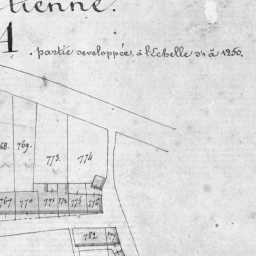 tienne.
1
partie développée à l'Echelle de à 1250.
769.
773.
774
767
770
771
772
775
776
782.